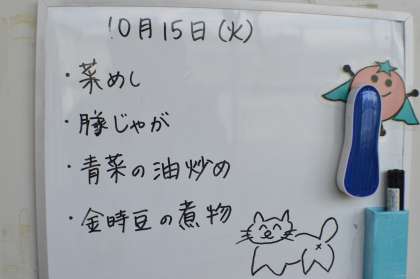 10月15日(火)
・菜めし
・豚じゃが
・青菜の油炒め
・金時豆の煮物